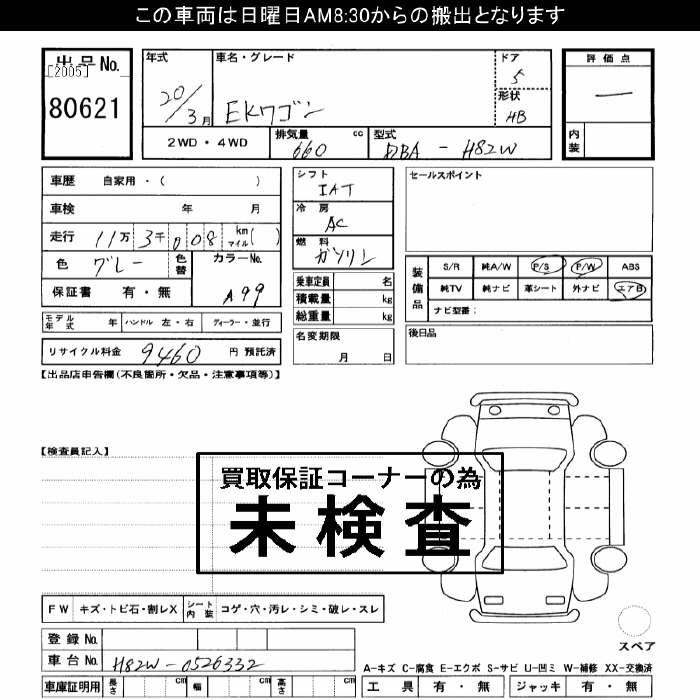 この車両は日曜日AM8:30からの搬出となります
出品No.
[2005]
80621
年式
20/3月
車名・グレード
EKワゴン
ドア
5
形状
HB
2WD・4WD
排気量
660 cc
型式
DBA - H82W
評価点
一
内装
車歴 自家用・( )
車検 年 月
走行 11万3千008 km マイル( )
色 グレー 色替 カラーNo. A99
保証書 有・無
モデル年式 年 ハンドル 左・右 ディーラー・並行
リサイクル料金 9460 円 預託済
シフト
IAT
冷房
AC
燃料
ガソリン
乗車定員 名
積載量 kg
総重量 kg
名変期限
月 日
セールスポイント
装備品
S/R 純A/W P/S P/W ABS
純TV 純ナビ 革シート 外ナビ エアB
ナビ型番:
後日品
【出品店申告欄(不良箇所・欠品・注意事項等)】
【検査員記入】
買取保証コーナーの為
未検査
FW キズ・トビ石・割レX シート内装 コゲ・穴・汚レ・シミ・破レ・スレ
登録No.
車台No. H82W-0526332
車庫証明用 長さ cm 幅 cm 高さ cm
スペア
A-キズ C-腐食 E-エクボ S-サビ U-凹ミ W-補修 XX-交換済
工具 有・無 ジャッキ 有・無